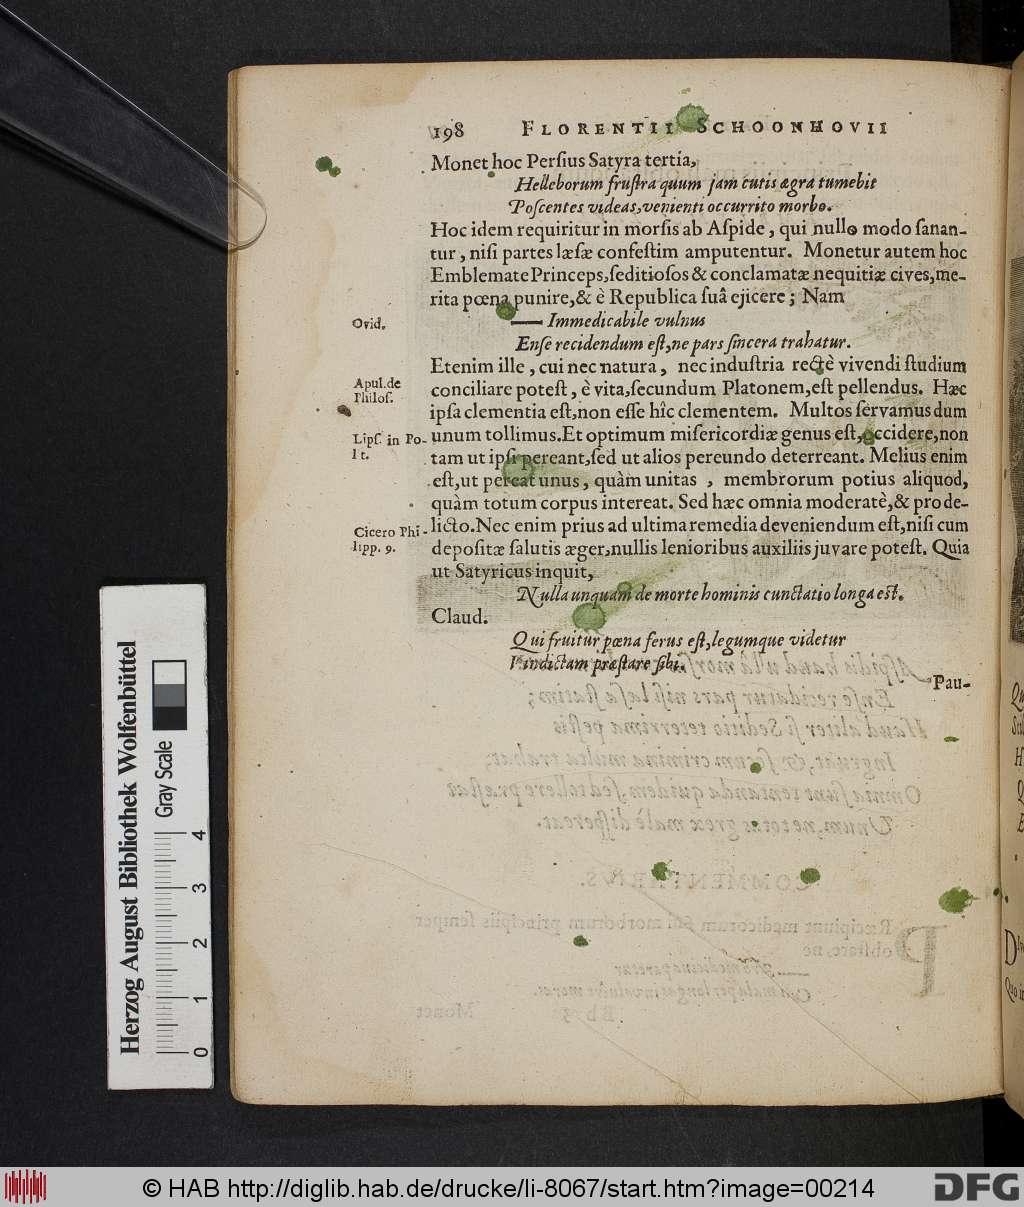 198 FLORENTII SCHOONHOVII
Monet hoc Perſius Satyra tertia,
Helleborum fruſtra quum jam cutis ægra tumebit
Poſcentes videas, venienti occurrito morbo.
Hoc idem requiritur in morſis ab Aſpide, qui nullo modo ſanan-
tur, niſi partes læſæ confeſtim amputentur. Monetur autem hoc
Emblemate Princeps, ſeditioſos & conclamatæ nequitiæ cives, me-
rita pœna punire, & è Republica ſuâ ejicere; Nam
Ovid.
—— Immedicabile vulnus
Enſe recidendum eſt, ne pars ſincera trahatur.
Etenim ille, cui nec natura, nec induſtria rectè vivendi ſtudium
Apul. de
Philoſ.
conciliare poteſt, è vita, ſecundum Platonem, eſt pellendus. Hæc
ipſa clementia eſt, non eſſe hîc clementem. Multos ſervamus dum
Lipſ. in Po-
l t.
unum tollimus. Et optimum miſericordiæ genus eſt, occidere, non
tam ut ipſi pereant, ſed ut alios pereundo deterreant. Melius enim
eſt, ut pereat unus, quàm unitas, membrorum potius aliquod,
quàm totum corpus intereat. Sed hæc omnia moderatè, & pro de-
Cicero Phi-
lipp. 9.
licto. Nec enim prius ad ultima remedia deveniendum eſt, niſi cum
depoſitæ ſalutis æger, nullis lenioribus auxiliis juvare poteſt. Quia
ut Satyricus inquit,
Nulla unquam de morte hominis cunctatio longa est.
Claud.
Qui fruitur pœna ferus eſt, legumque videtur
Vindictam præſtare ſibi.
Pau-
Herzog August Bibliothek Wolfenbüttel
Gray Scale
0 1 2 3 4
© HAB http://diglib.hab.de/drucke/li-8067/start.htm?image=00214
DFG